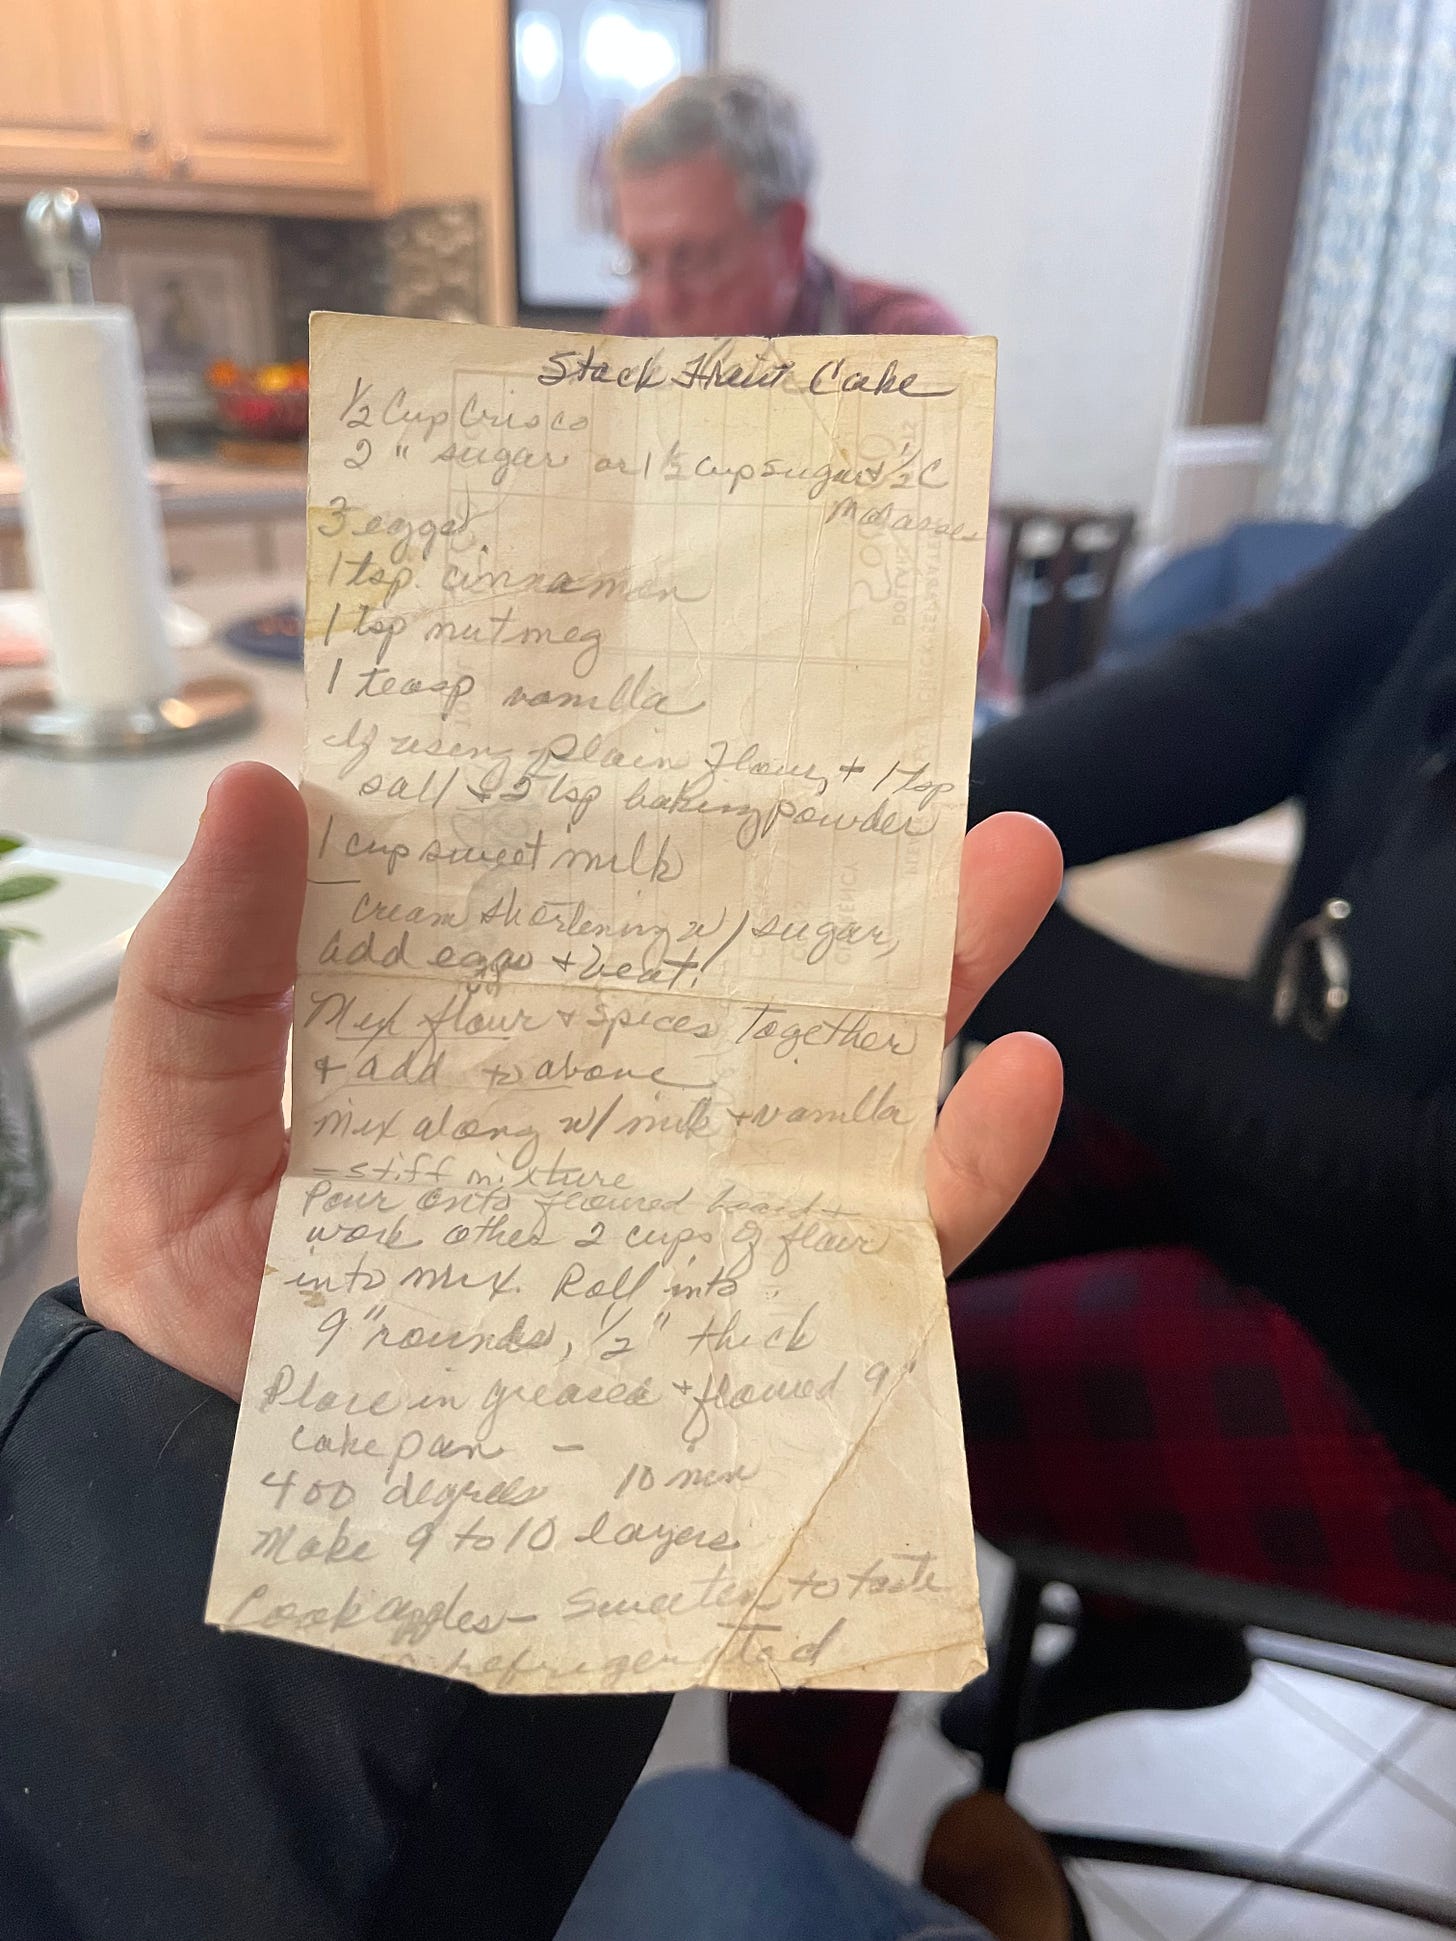 Stack Fruit Cake
1/2 Cup Crisco
2 " sugar or 1 1/2 cup sugar & 1/2 C
Molasses
3 eggs
1 tsp. cinnamon
1 tsp nutmeg
1 teasp vanilla
If using plain flour, + 1 tsp
salt & 2 tsp baking powder
1 cup sweet milk
cream shortening w/ sugar,
add eggs + beat.
Mix flour + spices together
+ add to above
Mix along w/ milk + vanilla
= stiff mixture
Pour onto floured board +
work other 2 cups of flour
into mix. Roll into
9" rounds, 1/2" thick
Place in greased + floured 9"
cake pan –
400 degrees 10 min
Make 9 to 10 layers
Cook apples – sweeten to taste
refrigerated